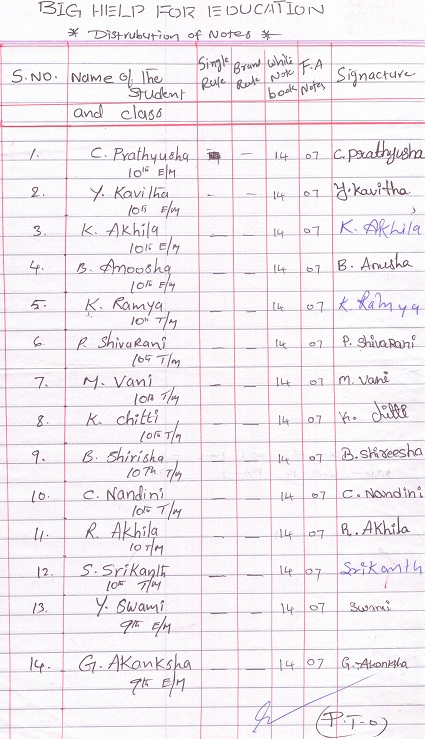 BIG HELP FOR EDUCATION
* Distrubution of Notes *
S.NO. Name of The Student and class Single Rule Brand Rule White Note book F.A Notes Signacture
1. C. Prathyusha — 14 07 C. Prathyusha
10th E/M
2. Y. Kavitha - - 14 07 Y. Kavitha
10th E/M
3. K. Akhila — — 14 07 K. Akhila
10th E/M
4. B. Anoosha — — 14 07 B. Anusha
10th E/M
5. K. Ramya — — 14 07 K. Ramya
10th T/M
6. P. ShivaRani — — 14 07 P. ShivaRani
10th T/M
7. M. Vani — — 14 07 M. Vani
10th T/M
8. K. chitti — — 14 07 K. chitti
10th T/M
9. B. Shirisha — — 14 07 B. Shireesha
10Th T/M
10. C. Nandini — — 14 07 C. Nandini
10th T/M
11. R. Akhila — — 14 07 R. Akhila
10 T/M
12. S. Srikanth — — 14 07 Srikanth
10th T/M
13. Y. Swami — — 14 07 Swami
9th E/M
14. G. Akanksha — — 14 07 G. Akanksha
9th E/M
(P.T-O)